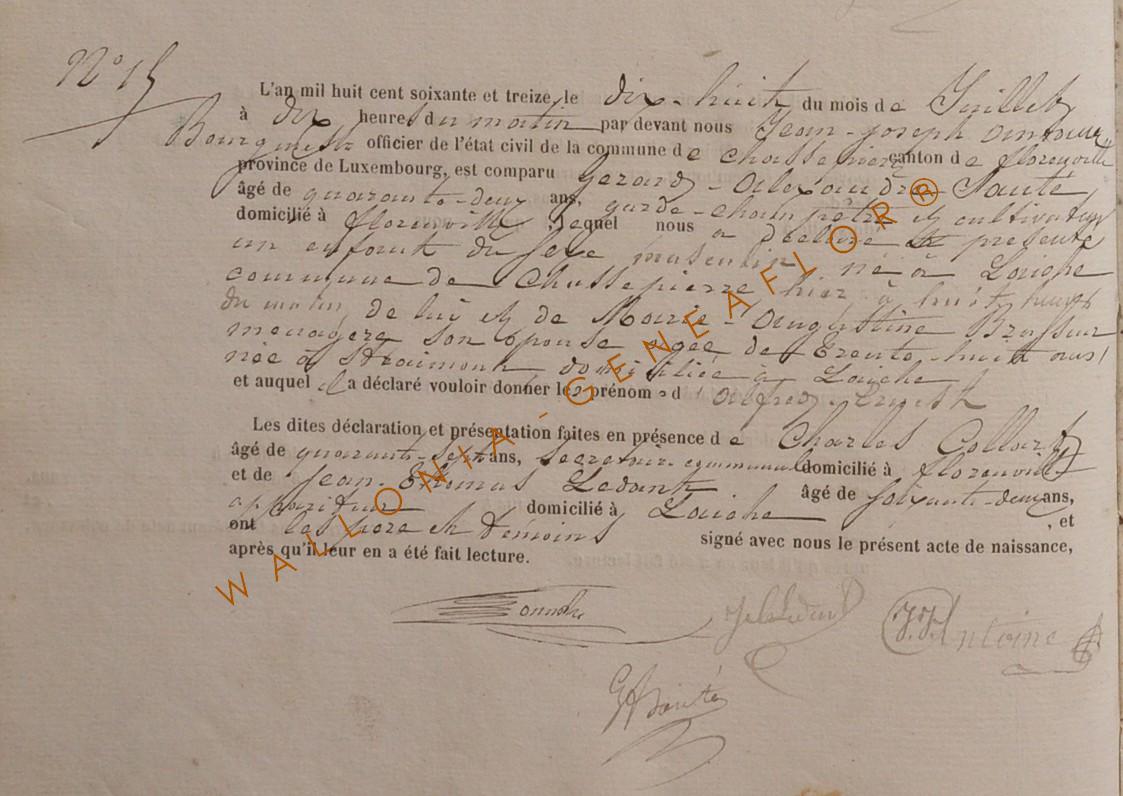 N° 15
L'an mil huit cent soixante et treize, le dix-huit du mois de Juillet
à dix heures du matin par devant nous Jean-Joseph Antoine
Bourgmestre officier de l'état civil de la commune de Chassepierre canton de florenville
province de Luxembourg, est comparu Gerard-Alexandre Santé,
âgé de quarante-deux ans, garde-champêtre et cultivateur
domicilié à florenville lequel nous a déclaré et présenté
un enfant du sexe masculin, né à Laiche
commune de Chassepierre hier à huit heures
du matin, de lui et de Marie-Augustine
menagere son épouse agée de trente-huit ans,
née à Straimont domiciliée à Laiche
et auquel il a déclaré vouloir donner les prénoms d'Alfred-Ernest
Les dites déclaration et présentation faites en présence de Charles Collard
âgé de quarante-sept ans, secretaire communal domicilié à florenville
et de Jean- Ledant âgé de soixante-deux ans,
appariteur domicilié à Laiche, et
ont les père et témoins signé avec nous le présent acte de naissance,
après qu'il leur en a été fait lecture.
JJ Antoine
GASanté
WALLONIA-GENEAFLOR®